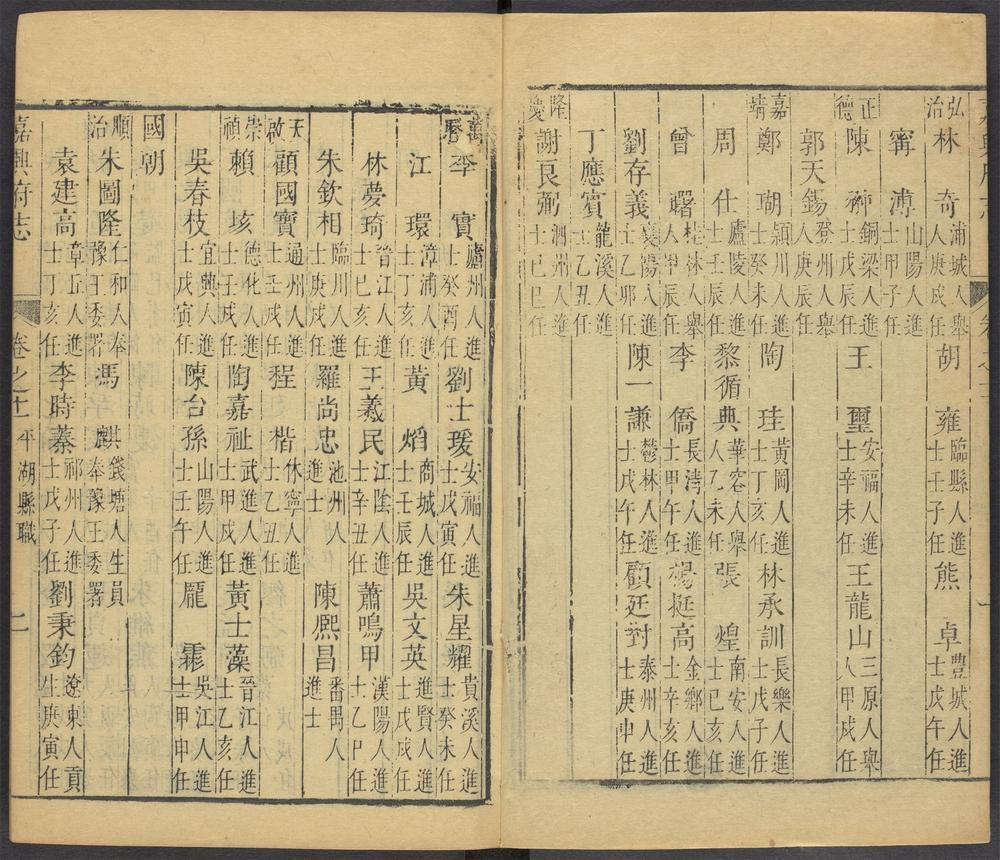 弘治 林奇 浦城人舉人庚戌任 胡雍 臨縣人進士壬子任 熊卓 豊城人進士戊午任
甯溥 山陽人進士甲子任
正德 陳 銅梁人進士戊辰任 王璽 安福人進士辛未任 王龍山 三原人舉人甲戌任
郭天錫 登州人舉人庚辰任
嘉靖 鄭瑚 潁川人進士癸未任 陶珪 黃岡人進士丁亥任 林承訓 長樂人進士戊子任
周仕 廬陵人進士壬辰任 黎循典 華容人舉人乙未任 張煌 南安人進士己亥任
曾曙 桂林人舉人辰任 李僑 長清人進士甲午任 楊挺高 金鄉人進士辛亥任
劉存義 襄陽人進士乙卯任 陳一謙 鬱林人進士戊午任 顧廷對 泰州人進士庚申任
丁應賓 龍溪人進士乙丑任
隆慶 謝良弼 泗州人進士己巳任
萬曆 李寳 廬州人進士癸酉任 劉士瑗 安福人進士戊寅任 朱星耀 貴溪人進士癸未任
江環 漳浦人進士丁亥任 黃熖 商城人進士壬辰任 吳文英 進賢人進士戊戌任
林夢琦 晉江人進士己亥任 王羲民 江陰人進士辛丑任 蕭鳴甲 漢陽人進士乙巳任
朱欽相 臨川人進士庚戌任 羅尚忠 池州人進士 陳熙昌 番禺人進士
天啟 顧國寶 通州人進士壬戌任 程楷 休寧人進士乙丑任
崇禎 賴垓 德化人進士壬戌任 陶嘉祉 武進人進士甲戌任 黃士藻 晉江人進士乙亥任
吳春枝 宜興人進士戊寅任 陳台孫 山陽人進士壬午任 龎霏 吳江人進士甲申任
國朝
順治 朱圖隆 仁和人奉豫王委署 馮麒 錢塘人生員奉豫王委署
袁建高 章丘人進士丁亥任 李時蓁 祁州人進士戊子任 劉秉鈞 遼東人貢生庚寅任
嘉興府志 卷之十 平湖縣職 二